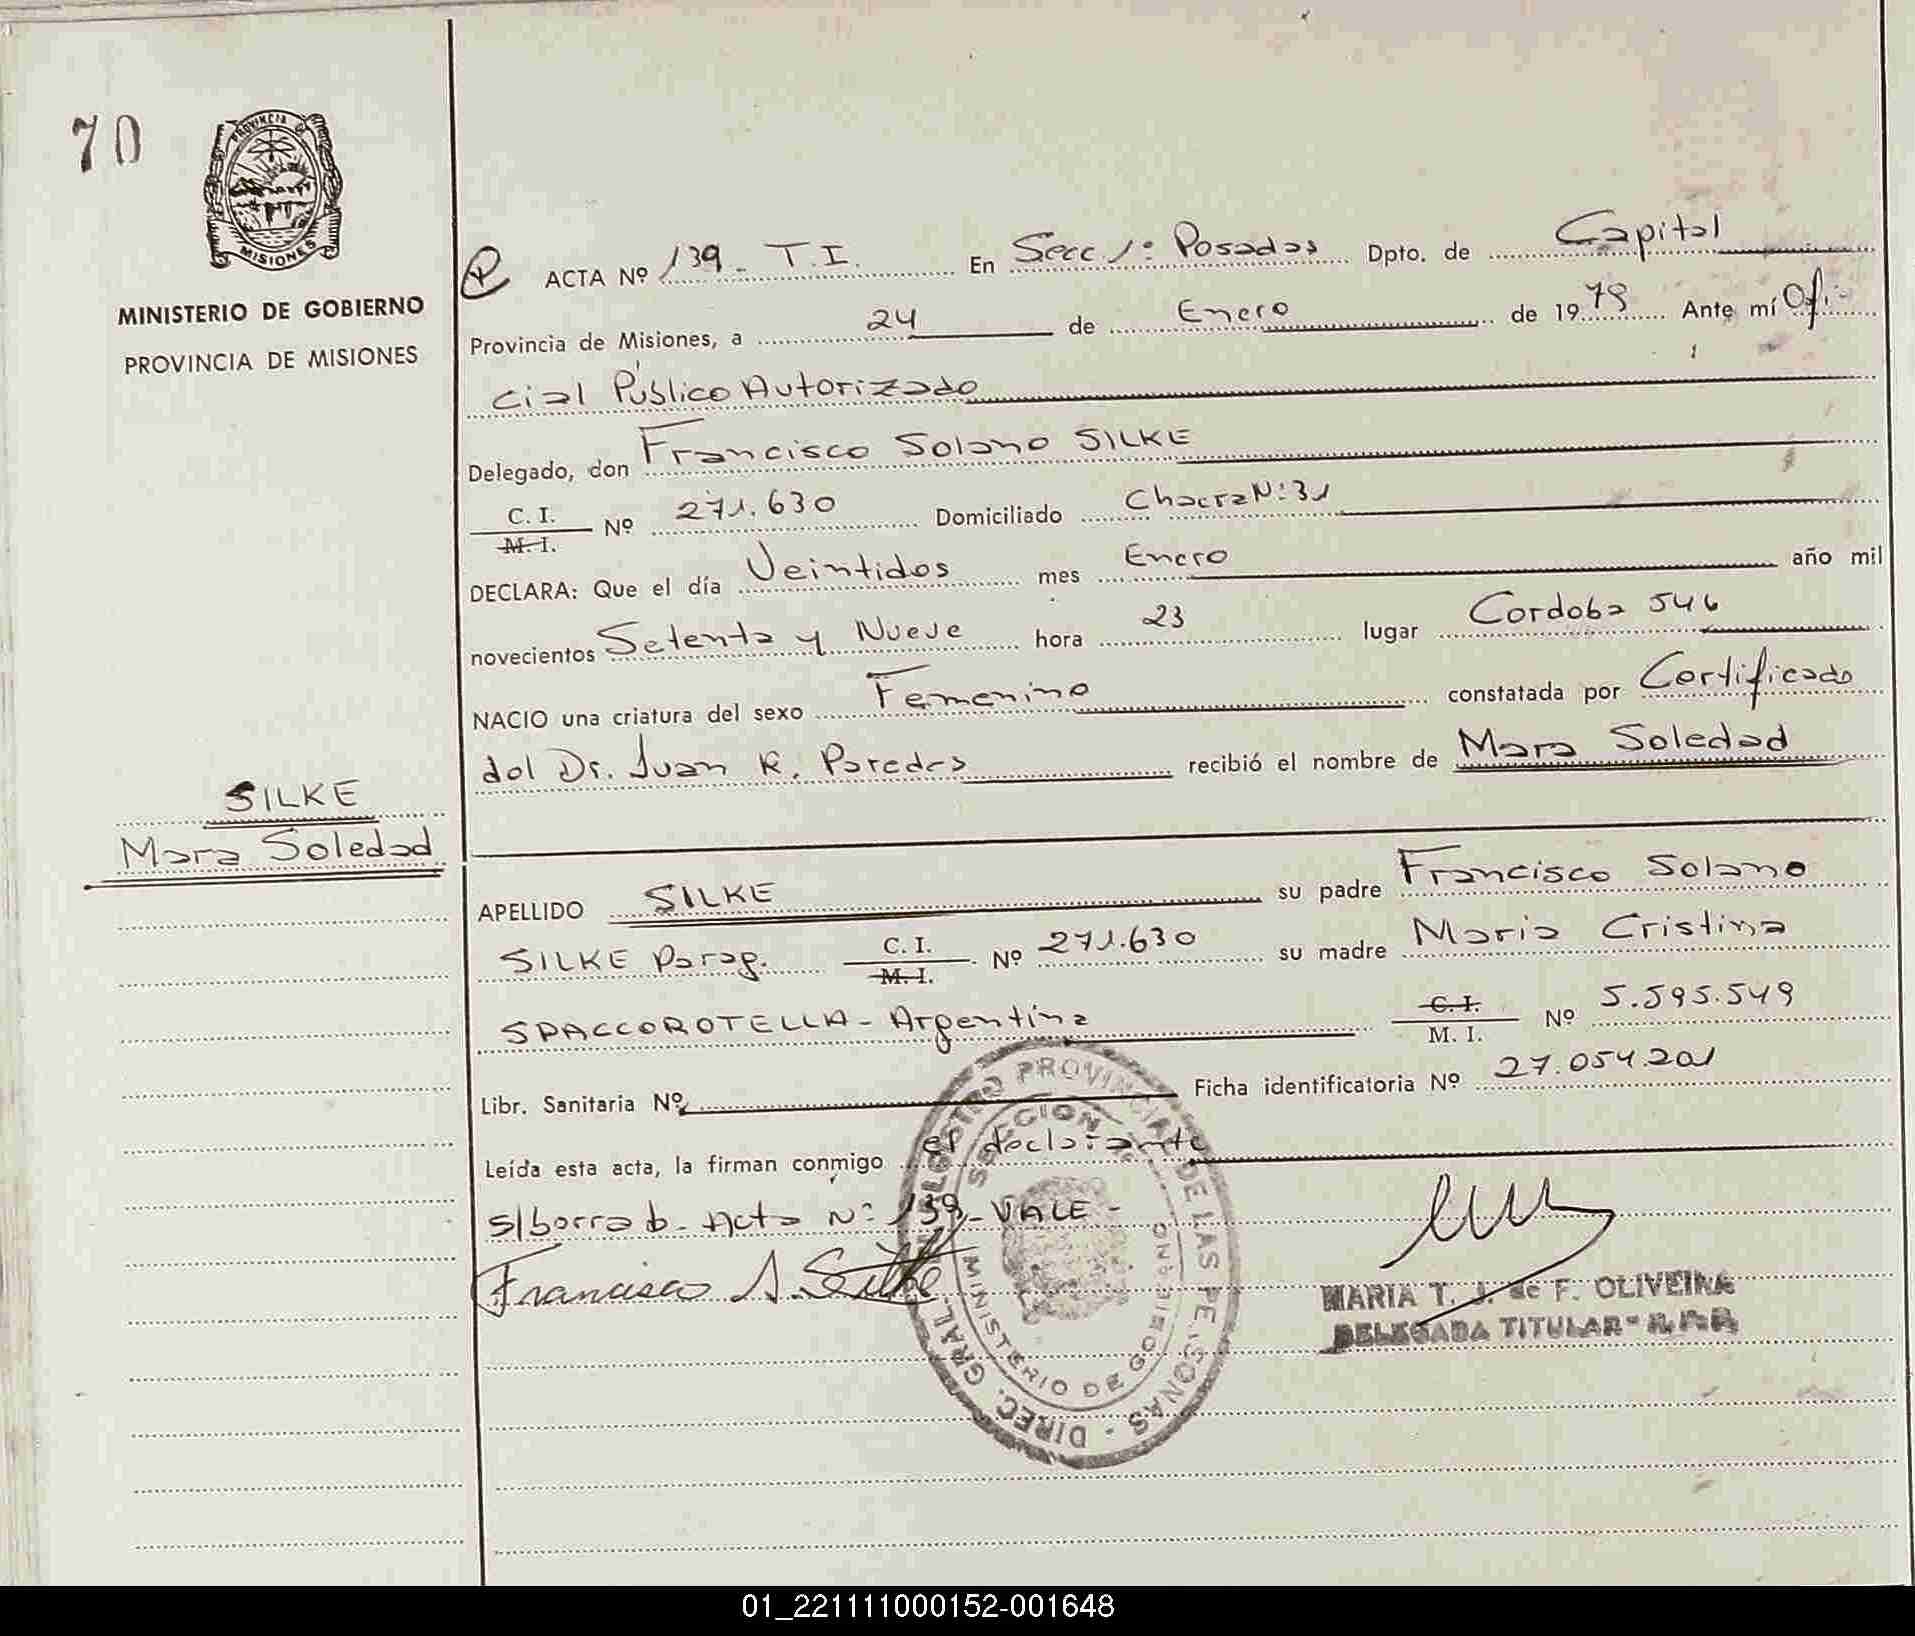 70
PROVINCIA DE
MISIONES
MINISTERIO DE GOBIERNO
PROVINCIA DE MISIONES
SILKE
Mara Soledad
ACTA Nº 139 - T.I. En Secc 1º Posadas Dpto. de Capital
Provincia de Misiones, a 24 de Enero de 1979 Ante mí Ofi-
cial Público Autorizado
Delegado, don Francisco Solano SILKE
C. I. M. I. Nº 271.630 Domiciliado Chacra Nº 31
DECLARA: Que el día Veintidos mes Enero año mil
novecientos Setenta y Nueve hora 23 lugar Cordoba 546
NACIO una criatura del sexo Femenino constatada por Certificado
del Dr. Juan R. Paredes recibió el nombre de Mara Soledad
APELLIDO SILKE su padre Francisco Solano
SILKE Parag. C. I. M. I. Nº 271.630 su madre Maria Cristina
SPACCOROTELLA - Argentina C. I. M. I. Nº 5.595.549
Libr. Sanitaria Nº Ficha identificatoria Nº 27.054.201
Leída esta acta, la firman conmigo el declarante
s/borrab - Acta Nº 139 - VALE -
Francisco S. Silke
DIREC. GRAL. REGISTRO PROVINCIAL DE LAS PERSONAS
SECCION
MINISTERIO DE GOBIERNO
MARIA T. J. de F. OLIVEIRA
DELEGADA TITULAR - R.P.P.
01_221111000152-001648